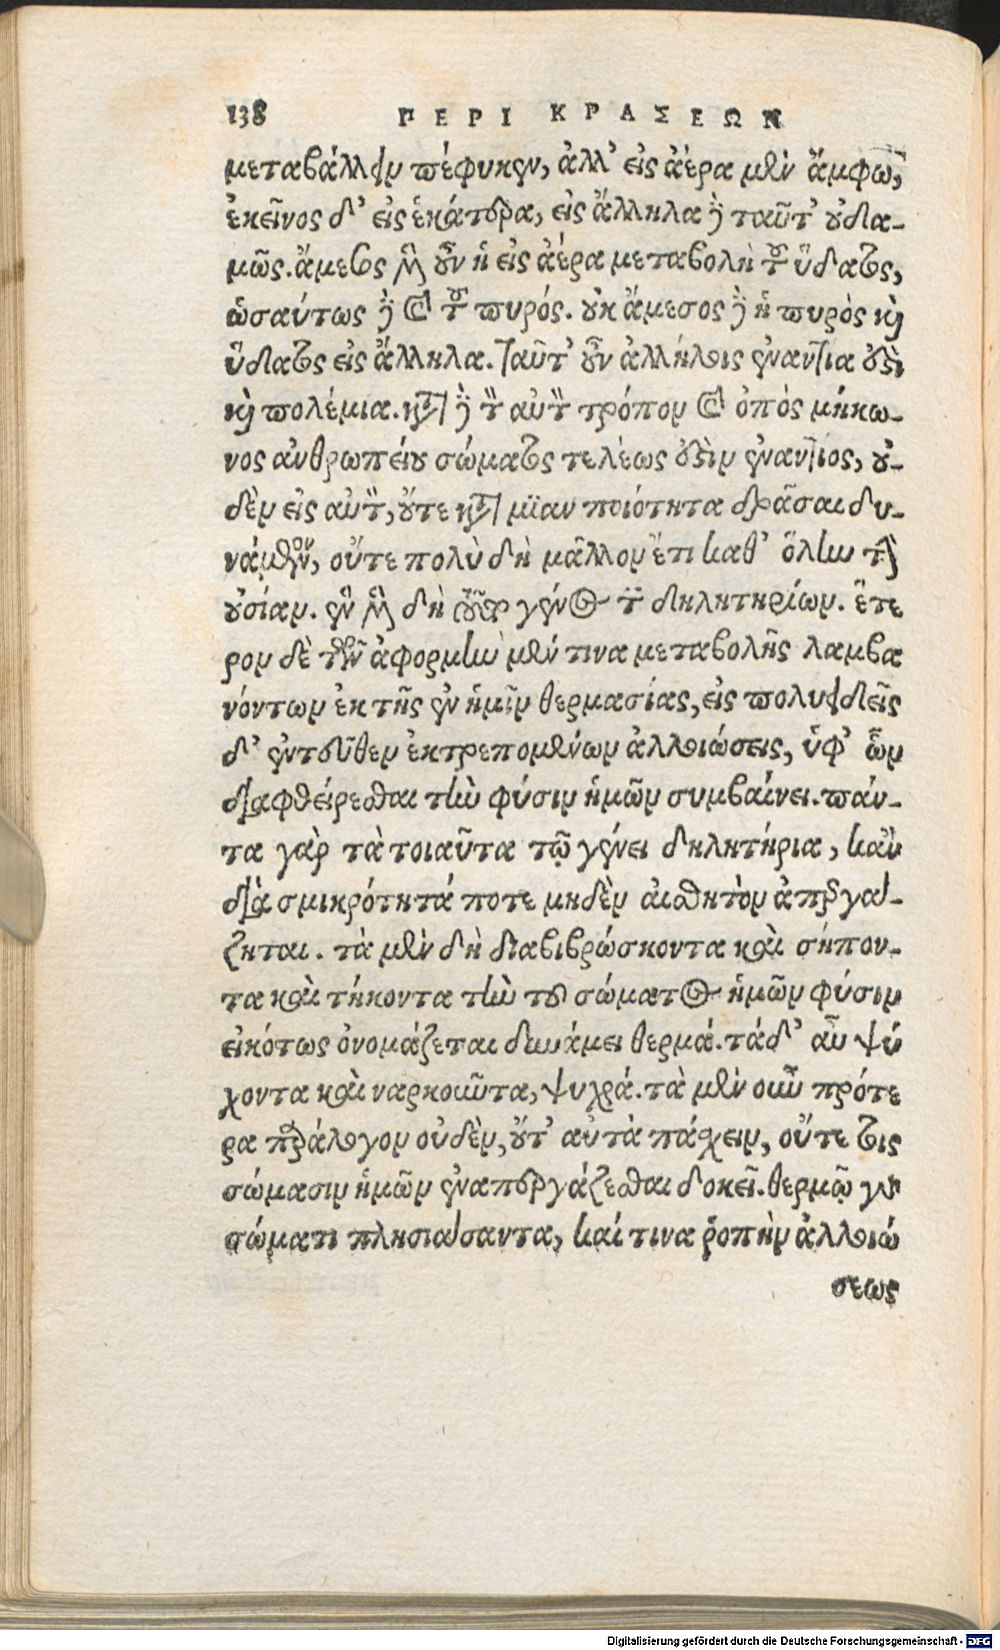 138 ΠΕΡΙ ΚΡΑΣΕΩΝ
μεταβάλλειν πέφυκεν, ἀλλ' εἰς ἀέρα μὲν ἄμφω,
ἐκεῖνος δ' εἰς ἑκάτερα, εἰς ἄλληλα δὲ ταῦτ' οὐδα-
μῶς. ἄμεσος μὲν οὖν ἡ εἰς ἀέρα μεταβολὴ τοῦ ὕδατος,
ὡσαύτως δὲ καὶ τοῦ πυρός. οὐκ ἄμεσος δὲ ἡ πυρὸς καὶ
ὕδατος εἰς ἄλληλα. ταῦτ' οὖν ἀλλήλοις ἐναντία ἐστὶ
καὶ πολέμια. κατὰ δὲ τὸν αὐτὸν τρόπον καὶ ὀπὸς μήκω-
νος ἀνθρωπείου σώματος τελέως ἐστὶν ἐναντίος, οὐ-
δὲν εἰς αὐτὸν, οὔτε κατὰ μίαν ποιότητα δρᾶσαι δυ-
νάμενον, οὔτε πολὺ δὴ μᾶλλον ἔτι καθ' ὅλην τὴν
οὐσίαν. ἓν μὲν δὴ τοῦτο γένος τῶν δηλητηρίων. ἕτε
ρον δὲ τῶν ἀφορμὴν μέν τινα μεταβολῆς λαμβα
νόντων ἐκ τῆς ἐν ἡμῖν θερμασίας, εἰς πολυειδεῖς
δ' ἐντεῦθεν ἐκτρεπομένων ἀλλοιώσεις, ὑφ' ὧν
διαφθείρεσθαι τὴν φύσιν ἡμῶν συμβαίνει. πάν-
τα γὰρ τὰ τοιαῦτα τῷ γένει δηλητήρια, κἂν
διὰ σμικρότητά ποτε μηδὲν αἰσθητὸν ἀπεργά-
ζηται. τὰ μὲν δὴ διαβιβρώσκοντα καὶ σήπον-
τα καὶ τήκοντα τὴν τοῦ σώματος ἡμῶν φύσιν
εἰκότως ὀνομάζεται δυνάμει θερμά. τά δ' αὖ ψύ
χοντα καὶ ναρκοῦντα, ψυχρά. τὰ μὲν οὖν πρότε
ρα παράλογον οὐδὲν, οὔτ' αὐτὰ πάσχειν, οὔτε τοῖς
σώμασιν ἡμῶν ἐναπεργάζεσθαι δοκεῖ. θερμῷ γὰρ
σώματι πλησιάσαντα, καί τινα ῥοπὴν ἀλλοιώ
σεως
Digitalisierung gefördert durch die Deutsche Forschungsgemeinschaft - DFG